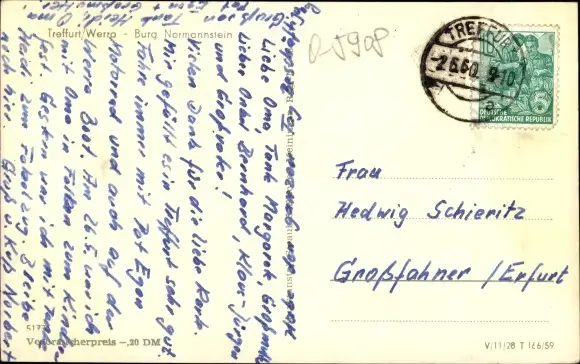 Treffurt/Werra - Burg Normannstein
Liebe Oma, Tante Margaret, Großmutter
Lieber Onkel Bernhard, Klaus-Jürgen
und Großvater!
Vielen Dank für die liebe Karte.
Mir gefällt es in Treffurt sehr gut.
Fahre immer mit Pat Egon
Motorrad und auch auf der
Werra Boot. Am 26.5 war ich
mit Oma in Falken zum Kinder-
fest. Gestern war ich mit Tante
Heidi zum Fakelzug. Bleibe
noch hier. Gruß u. Kuß Norbert
Gruß von Tante Heidi Oma
Pat Egon + Großmutter
D-5908
TREFFURT
-2.6.60.-9-10
DEUTSCHE
DEMOKRATISCHE REPUBLIK
Frau
Hedwig Schieritz
Großfahner / Erfurt
517
Verbraucherpreis -,20 DM
V/11/28 T 166/59